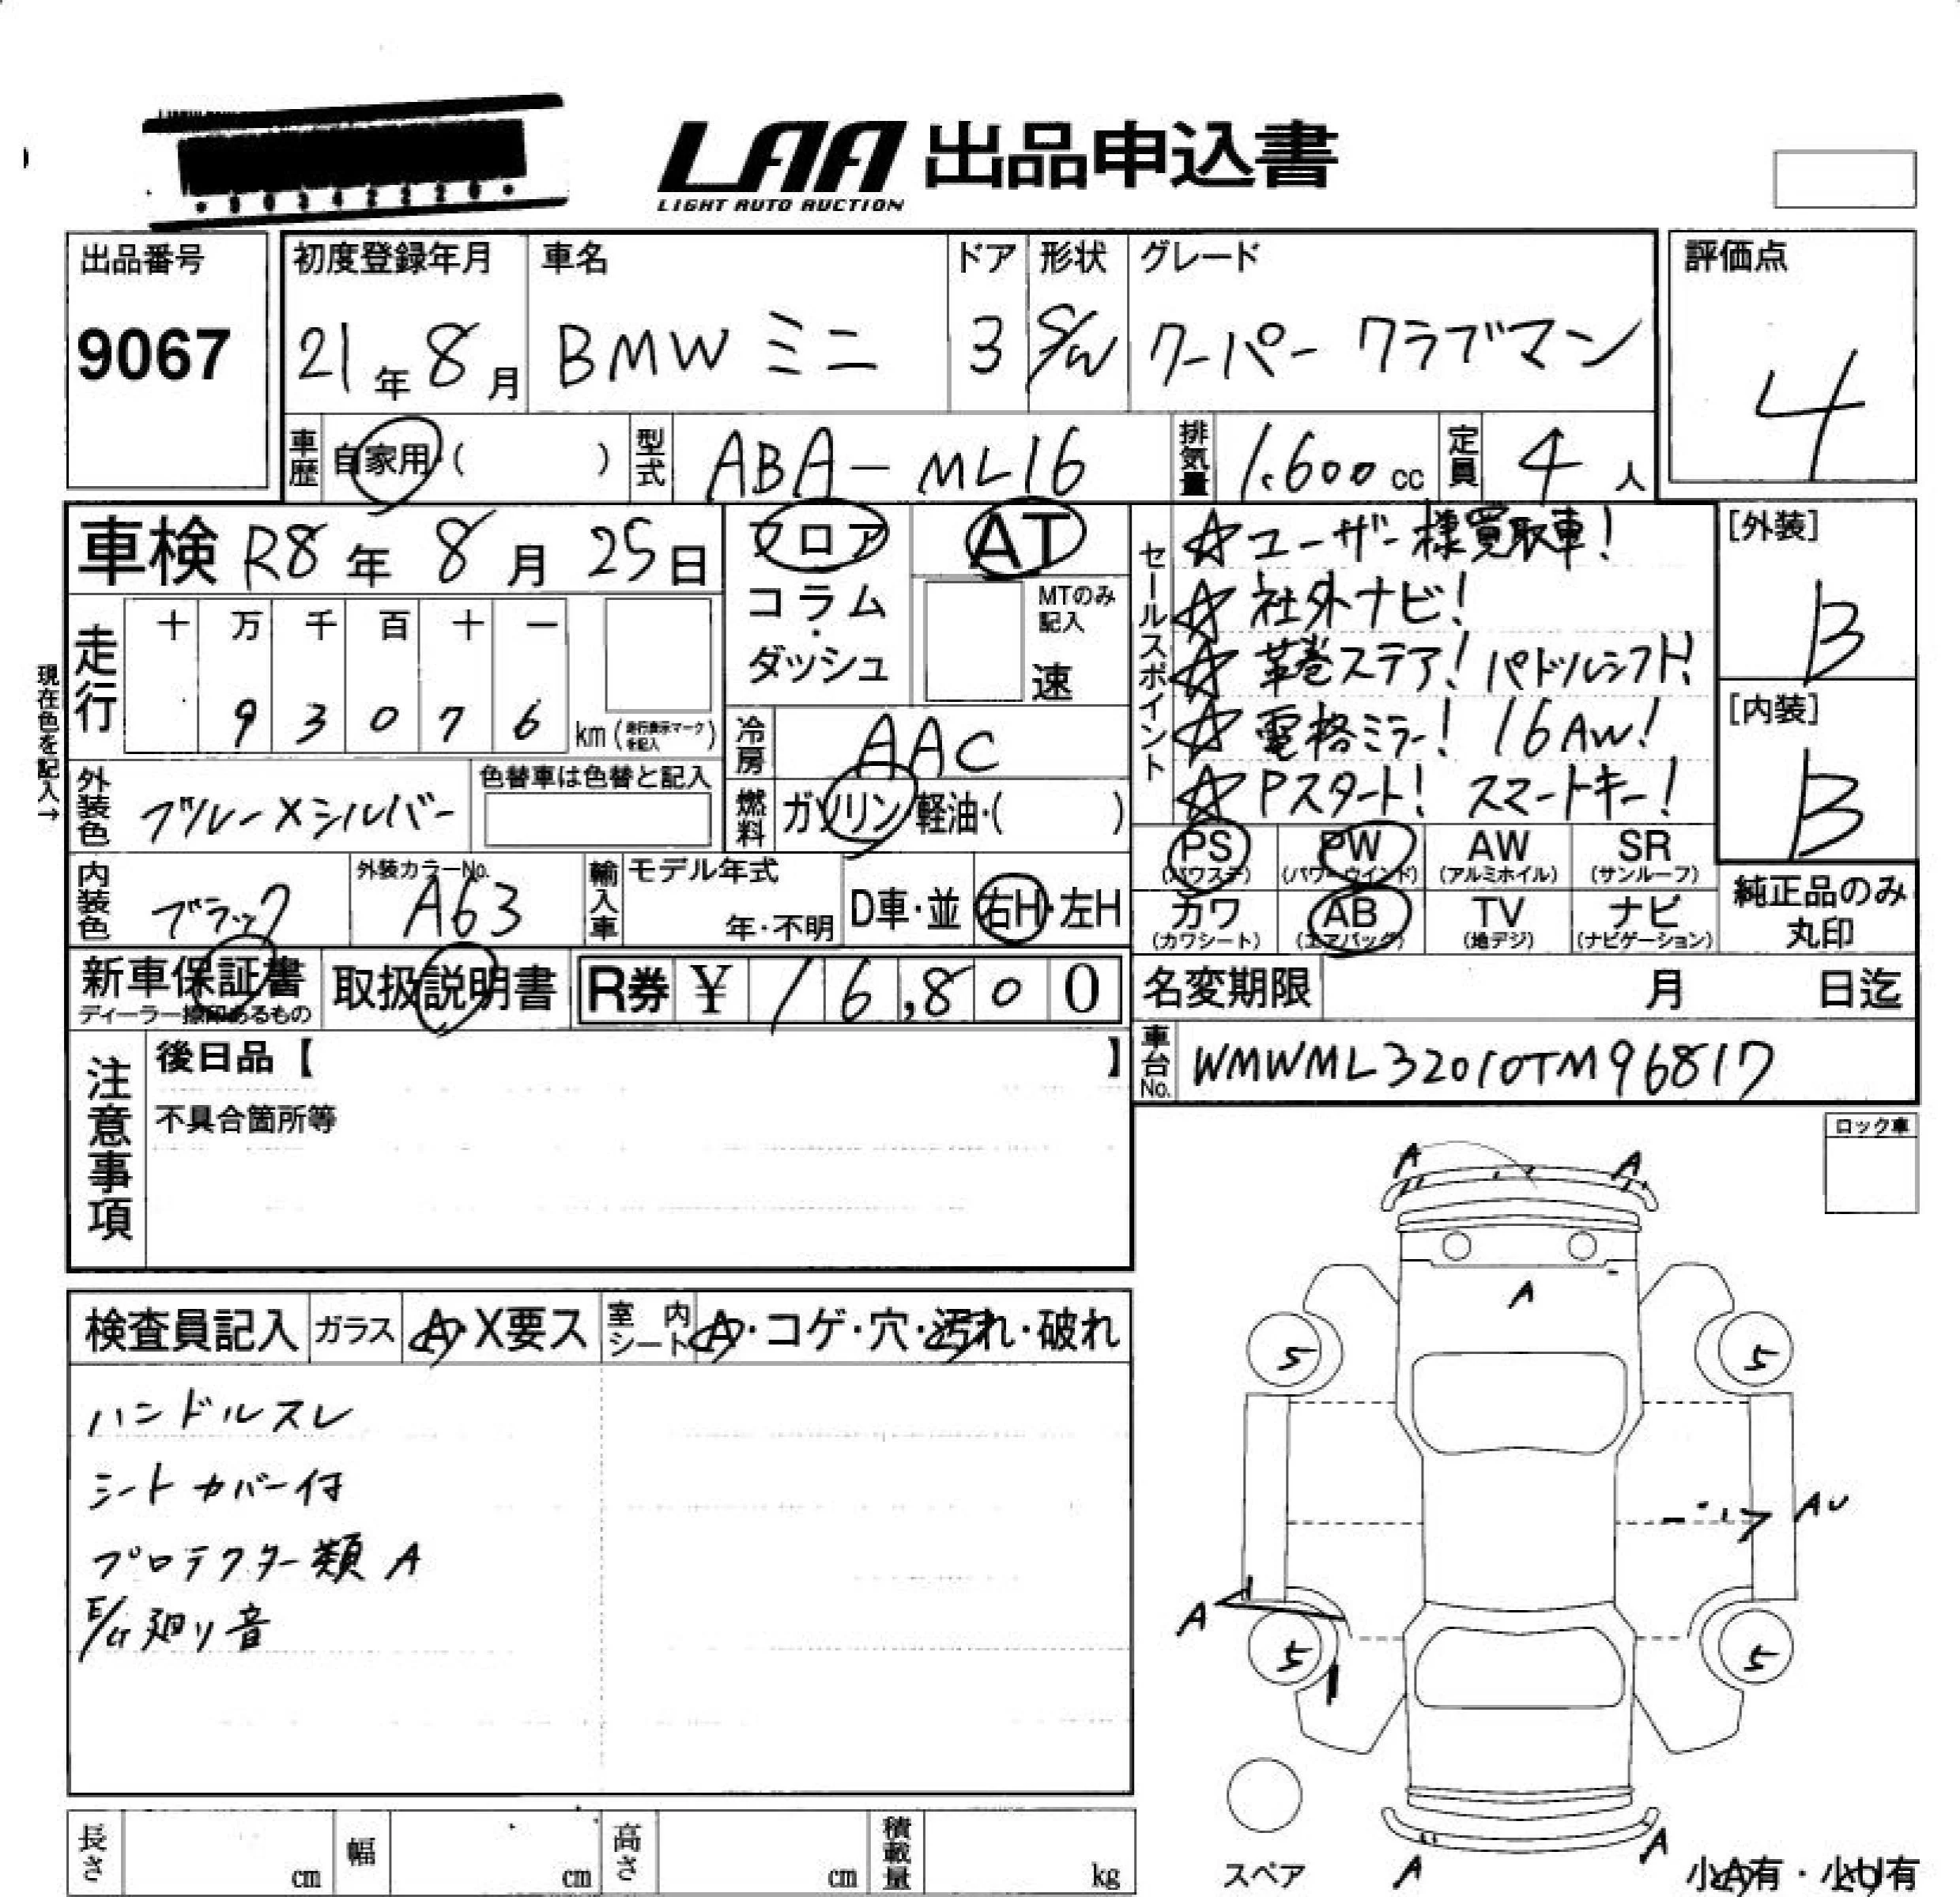 LAA 出品申込書
LIGHT AUTO AUCTION
出品番号
9067
初度登録年月
21年8月
車名
BMW ミニ
ドア
3
形状
S/W
グレード
クーパー クラブマン
評価点
4
車歴 自家用・( )
型式 ABA-ML16
排気量 1.600cc
定員 4人
車検 R8年8月25日
フロア
コラム
・
ダッシュ
AT
MTのみ記入
速
セールスポイント
☆ユーザー様買取車!
☆社外ナビ!
☆革巻ステア! パドルシフト!
☆電格ミラー! 16AW!
☆Pスタート! スマートキー!
[外装]
B
[内装]
B
現在色を記入→
走行
十 万 千 百 十 一
9 3 0 7 6 km (走行表示マークを記入)
冷房 AAC
燃料 ガソリン・軽油・( )
外装色 ブルー×シルバー
色替車は色替と記入
内装色 ブラック
外装カラーNo.
A63
輸入車
モデル年式
年・不明
D車・並
右H・左H
PS (パワステ)
PW (パワーウインド)
AW (アルミホイル)
SR (サンルーフ)
カワ (カワシート)
AB (エアバッグ)
TV (地デジ)
ナビ (ナビゲーション)
純正品のみ
丸印
新車保証書
ディーラー捺印あるもの
取扱説明書
R券 ¥ 16,800
名変期限 月 日迄
車台No. WMWML32010TM96817
注意事項
後日品【 】
不具合箇所等
ロック車
検査員記入 ガラス A・X要ス 室内シート A・コゲ・穴・汚れ・破れ
ハンドルスレ
シートカバー付
プロテクター類 A
E/G廻り音
A A
A
5 5
AU
A
5 5
A A
スペア
小A有・小U有
長さ cm
幅 cm
高さ cm
積載量 kg